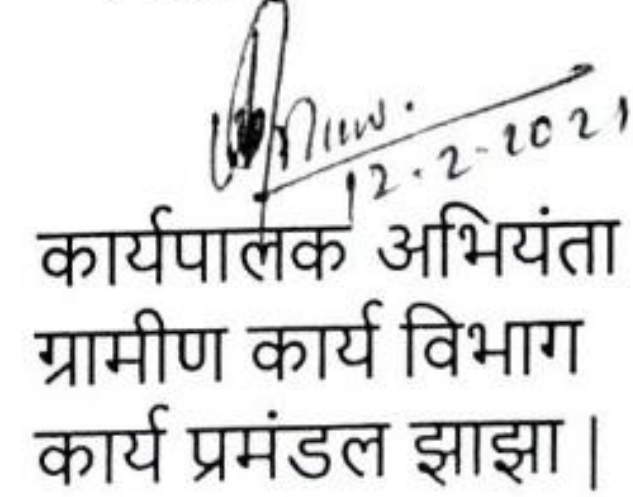 12.2.2021
कार्यपालक अभियंता
ग्रामीण कार्य विभाग
कार्य प्रमंडल झाझा |